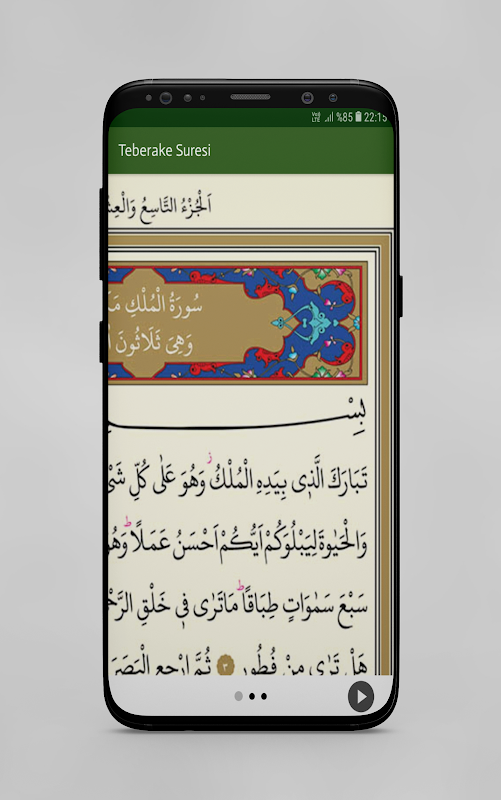 %85 22:15
Teberake Suresi
اَلْجُزْءُ التَّاسِعُ
سُورَةُ الْمُلْكِ
وَهِيَ ثَلَاثُونَ
بِسْـ
تَبَارَكَ الَّذ۪ي بِيَدِهِ الْمُلْكُۘ وَهُوَ عَلٰى كُلِّ
وَالْحَيٰوةَ لِيَبْلُوَكُمْ اَيُّكُمْ اَحْسَنُ عَمَلًاۜ
سَبْعَ سَمٰوَاتٍ طِبَاقًاۜ مَاتَرٰى ف۪ي خَلْقِ
هَلْ تَرٰى مِنْ فُطُورٍ ٣ ثُمَّ ارْجِعِ الْبَصَرَ